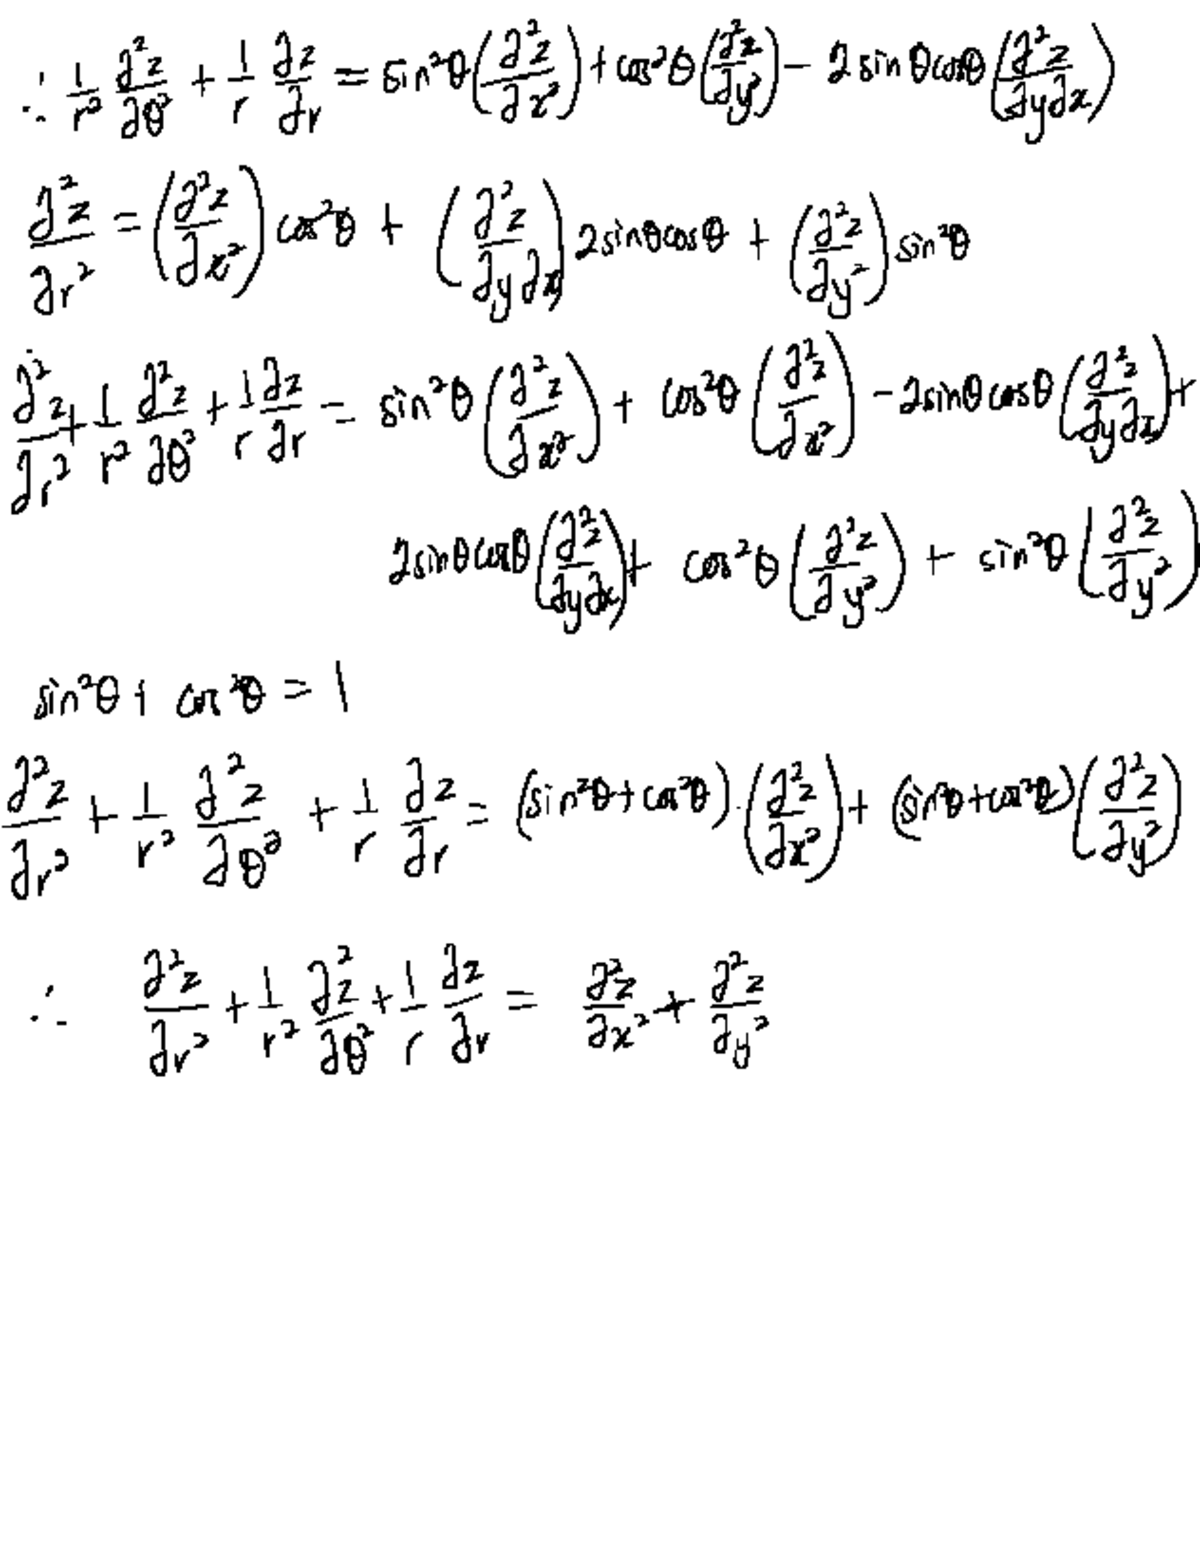 ∴ 1/r² ∂²z/∂θ² + 1/r ∂z/∂r = sin²θ(∂²z/∂x²) + cos²θ(∂²z/∂y²) − 2 sinθcosθ(∂²z/∂y∂x)
∂²z/∂r² = (∂²z/∂x²)cos²θ + (∂²z/∂y∂x)2sinθcosθ + (∂²z/∂y²)sin²θ
∂²z/∂r² + 1/r² ∂²z/∂θ² + 1/r ∂z/∂r = sin²θ(∂²z/∂x²) + cos²θ(∂²z/∂x²) − 2sinθcosθ(∂²z/∂y∂x) +
2sinθcosθ(∂²z/∂y∂x) + cos²θ(∂²z/∂y²) + sin²θ(∂²z/∂y²)
sin²θ + cos²θ = 1
∂²z/∂r² + 1/r² ∂²z/∂θ² + 1/r ∂z/∂r = (sin²θ + cos²θ)·(∂²z/∂x²) + (sin²θ + cos²θ)(∂²z/∂y²)
∴ ∂²z/∂r² + 1/r² ∂²z/∂θ² + 1/r ∂z/∂r = ∂²z/∂x² + ∂²z/∂y²